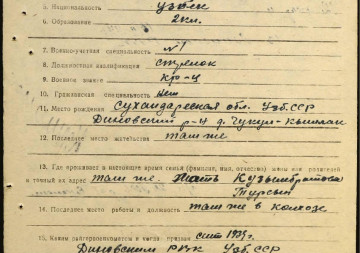 5. Национальность узбек
6. Образование 2 кл.
7. Военно-учетная специальность №1
8. Должностная квалификация стрелок
9. Воинское звание кр-ц
10. Гражданская специальность нет
11. Место рождения Сухандарская обл. Узб.ССР
Диновский р-н д. Чукул-Кышлак
12. Последнее место жительства там же
13. Где проживает в настоящее время семья (фамилия, имя, отчество) жены или родителей
и точный их адрес там же. Мать
Турсын
14. Последнее место работы и должность там же в колхозе
15. Каким райгорвоенкоматом и когда призван 1939 г.
Диновским РВК Узб.ССР